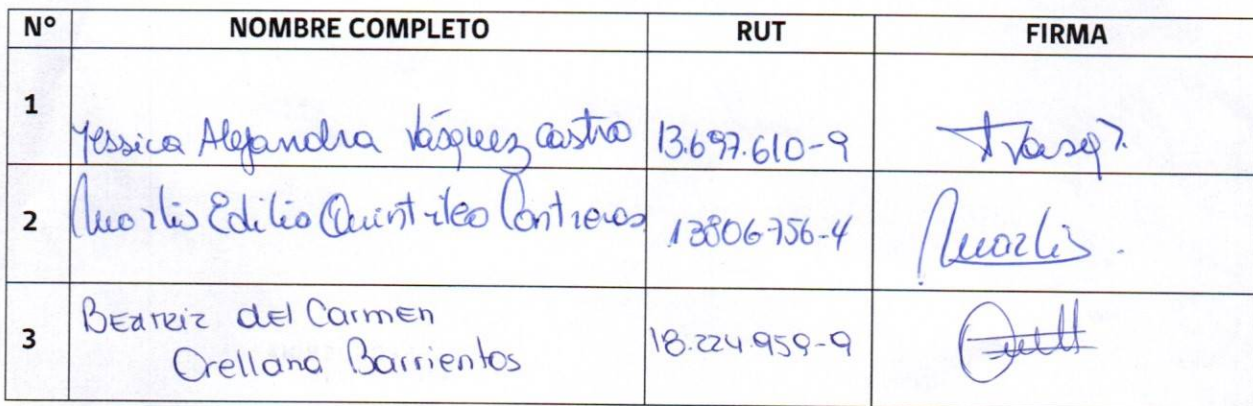 N° NOMBRE COMPLETO RUT FIRMA
1 Yessica Alejandra Vásquez Castro 13.697.610-9
2 Marlis Edilia Quintileo Contreras 13806756-4 Marlis.
3 Beatriz del Carmen
Orellana Barrientos 18.224.959-9